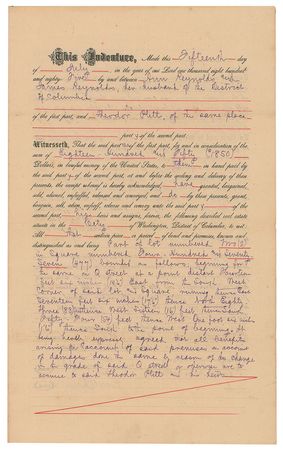 This Indenture, Made this Fifteenth day
of July in the year of our Lord one thousand eight hundred
and eighty five by and between Ann Reynolds and
James Reynolds, her husband of the District
of Columbia
of the first part, and Theodor Plitt of the same place
part y of the second part.
Witnesseth, That the said part of the first part, for and in consideration of the
sum of Eighteen Hundred and Fifty ($1850)
Dollars, in lawful money of the United States, to them in hand paid by
the said part y of the second part, at and before the sealing and delivery of these
presents, the receipt whereof is hereby acknowledged, have granted, bargained,
sold, aliened, enfeoffed, released and conveyed, and do by these presents, grant,
bargain, sell, alien, enfeoff, release and convey unto the said part y of the
second part, his heirs and assigns, forever, the following described real estate
situate in the City of Washington, District of Columbia, to wit:
All that piece or parcel of land and premises, known and
distinguished as and being Part of lot numbered Two (2)
in Square numbered Four Hundred and Seventy
Seven (477) bounded as follows, beginning for
the same on Q street at a point distant
feet six inches from the South West
corner of said lot and square running thence East
Seventeen feet six inches (17 6/12) thence North Eighty
thence West Sixteen feet, thence South
Fifty Four (54) feet thence West One foot six inches
thence South to the point of beginning. It
being hereby expressly agreed that all benefits
arising to account of said premises on account
of damage done the same by reason of the change
in grade of said Q street or openings are to
accrue to said Theodor Plitt and his heirs